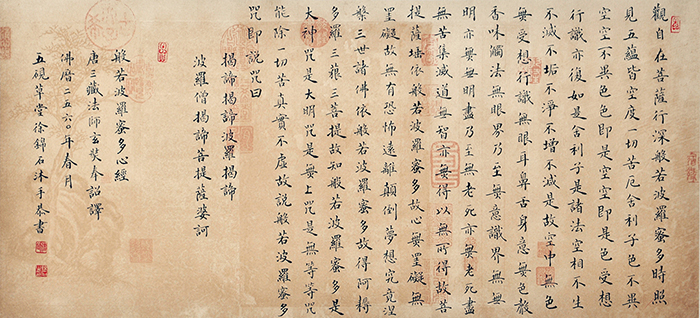 觀自在菩薩行深般若波羅蜜多時照
見五蘊皆空度一切苦厄舍利子色不異
空空不異色色即是空空即是色受想
行識亦復如是舍利子是諸法空相不生
不滅不垢不淨不增不減是故空中無色
無受想行識無眼耳鼻舌身意無色聲
香味觸法無眼界乃至無意識界無無
明亦無無明盡乃至無老死亦無老死盡
無苦集滅道無智亦無得以無所得故菩
提薩埵依般若波羅蜜多故心無罣礙無
罣礙故無有恐怖遠離顛倒夢想究竟涅
槃三世諸佛依般若波羅蜜多故得阿耨
多羅三藐三菩提故知般若波羅蜜多是
大神咒是大明咒是無上咒是無等等咒
能除一切苦真實不虛故說般若波羅蜜多
咒即說咒曰
揭諦揭諦波羅揭諦
波羅僧揭諦菩提薩婆訶
般若波羅蜜多心經
唐三藏法師玄奘奉詔譯
佛曆二五六〇年春月
五硯草堂徐錦石沐手恭書